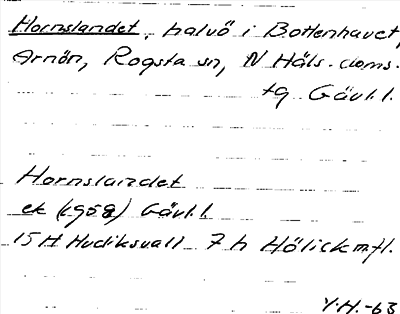 Hornslandet, halvö i Bottenhavet,
Arnön, Rogsta sn, N Häls. doms.
tg Gävl.l.
Hornslandet
ek (1958) Gävl.l
15 H Hudiksvall 7 h Hölick m fl.
Y.H.-63